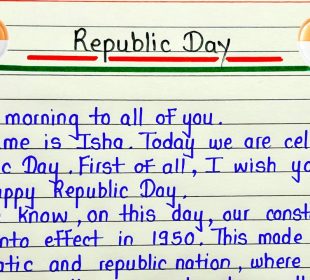 Republic Day
morning to all of you.
me is Isha. Today we are cel
c Day. First of all, I wish yo
appy Republic Day.
know, on this day, our const
nto effect in 1950. This made
atic and republic nation, where